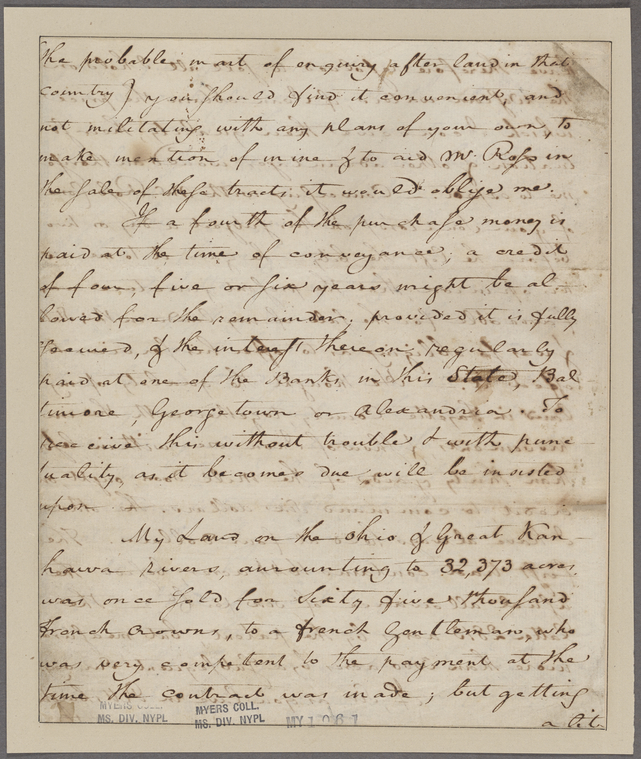 the probable mart of enquiry after land in that
country) you should find it convenient, and
not militating with any plans of your own, to
make mention of mine & to aid Mr. Ross in
the sale of these tracts, it would oblige me.
If a fourth of the purchase money is
paid at the time of conveyance, a credit
of four, five or six years might be al-
lowed for the remainder; provided it is fully
secured, & the interest thereon, regularly
paid at one of the Banks in this State, Bal
timore, Georgetown or Alexandria. To
receive this without trouble & with punc-
tuality, as it becomes due will be insisted
upon.
My Land on the Ohio & Great Kan-
hawa rivers, amounting to 32,373 acres
was once sold for sixty five thousand
French Crowns, to a french Gentleman, who
was very competent to the payment at the
time the contract was made; but getting
a lit
MYERS COLL.
MS. DIV. NYPL
MYERS COLL.
MS. DIV. NYPL